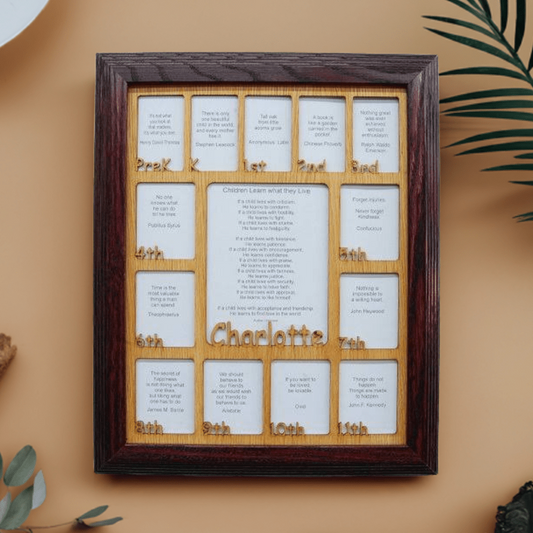 It's not what
you look at
that matters,
it's what you see.
Henry David Thoreau
PreK
There is only
one beautiful
child in the world
and every mother
has it.
Stephen Leacock
K
Tall oak
from little
acorns grow.
Anonymous Latin
1st
A book is
like a garden
carried in the
pocket.
Chinese Proverb
2nd
Nothing great
was ever
achieved
without
enthusiasm.
Ralph Waldo
Emerson
3rd
No one
knows what
he can do
till he tries.
Publilius Syrus
4th
Children Learn what they Live
If a child lives with criticism,
He learns to condemn.
If a child lives with hostility,
He learns to fight.
If a child lives with shame,
He learns to feel guilty.
If a child lives with tolerance,
He learns patience.
If a child lives with encouragement,
He learns confidence.
If a child lives with praise,
He learns to appreciate.
If a child lives with fairness,
He learns justice.
If a child lives with security,
He learns to have faith.
If a child lives with approval,
He learns to like himself.
If a child lives with acceptance and friendship
He learns to find love in the world.
Charlotte
Forget injuries
Never forget
Kindness
Confucius
5th
Time is the
most valuable
thing a man
can spend.
Theophrastus
6th
Nothing is
impossible to
a willing heart.
John Heywood
7th
The secret of
happiness
is not doing what
one likes,
but liking what
one has to do
James M. Barrie
8th
We should
behave to
our friends
as we would wish
our friends to
behave to us.
Aristotle
9th
If you want to
be loved,
be lovable
Ovid
10th
Things do not
happen.
Things are made
to happen.
John F. Kennedy
11th